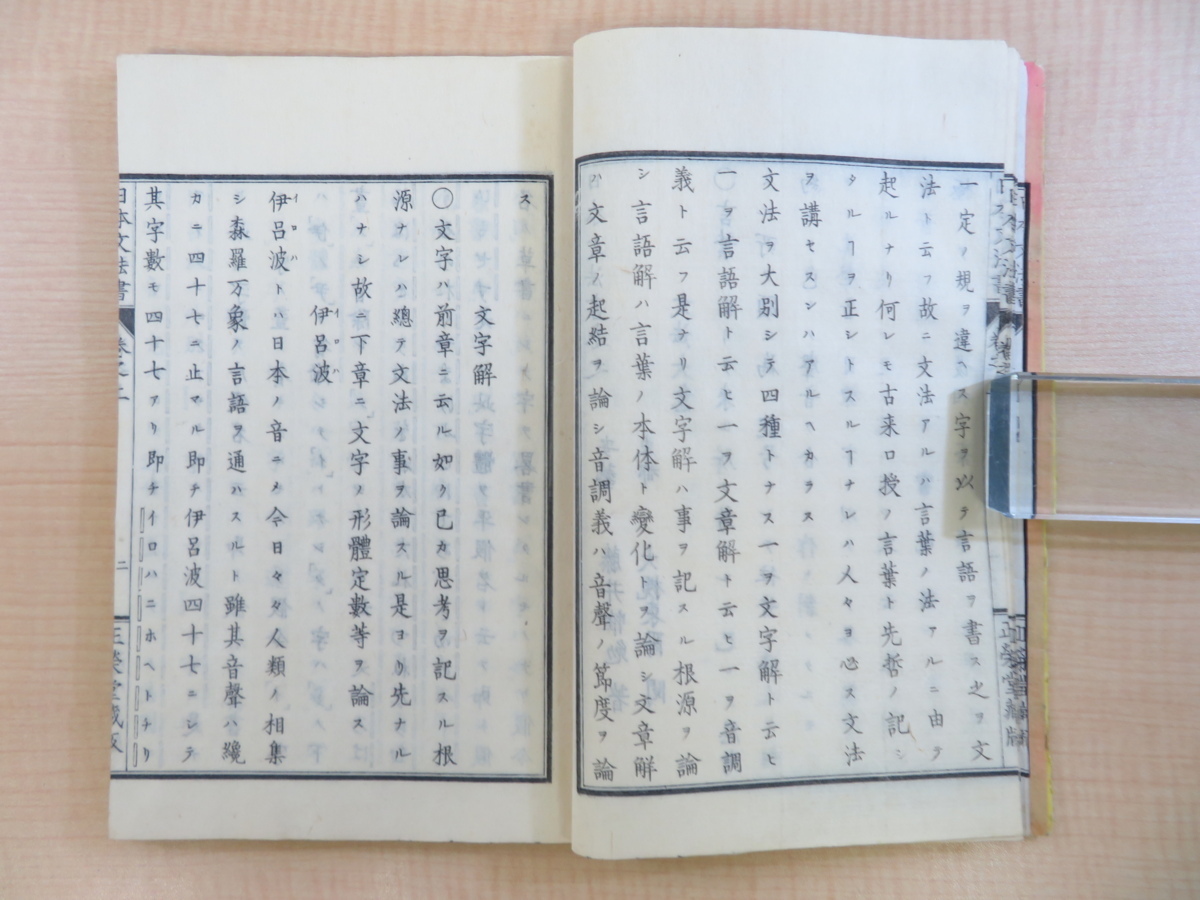 一定ノ規ヲ違ヘス字ヲ以テ言語ヲ書ス之ヲ文
法ト云フ故ニ文法アルハ言葉ノ法アルニ由テ
起ルナリ何レモ古来口授ノ言葉ト先哲ノ記シ
タルヿヲ正シトスルヿナレハ人々ヨロシク心ス文法
ヲ講セスンハアルヘカラス
文法ヲ大別シテ四種トナス一ヲ文字解ト云ヒ
一ヲ言語解ト云ヒ一ヲ文章解ト云ヒ一ヲ音調
義ト云フ是ナリ文字解ハ事ヲ記スル根源ヲ論
シ言語解ハ言葉ノ本体ト變化トヲ論シ文章解
ハ文章ノ起結ヲ論シ音調義ハ音聲ノ節度ヲ論
ス
文字解
〇文字ハ前章ニ云ル如ク已カ思考ヲ記スル根
源ナレハ總テ文法ノ事ヲ論スル是ヨリ先ナル
ハナシ故ニ下章ニ文字ノ形體定數等ヲ論ス
伊呂波
イロハ
伊呂波トハ日本ノ音ニメ今日々タ人類ノ相集
イロハ
シ森羅万象ノ言語ヲ通ハスルト雖其音聲ハ纔
カニ四十七ニ止マル即チ伊呂波四十七ニシテ
其字數モ四十七アリ即チイロハニホヘトチリ
日本文法書
卷之上
二
正榮堂藏版